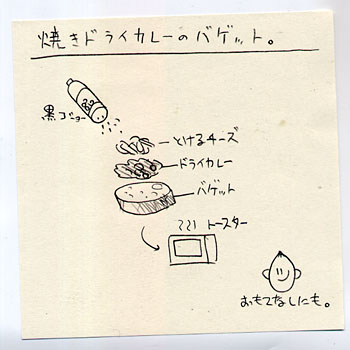 焼きドライカレーのバゲット。
黒コショー
とけるチーズ
ドライカレー
バゲット
トースター
おもてなしにも。